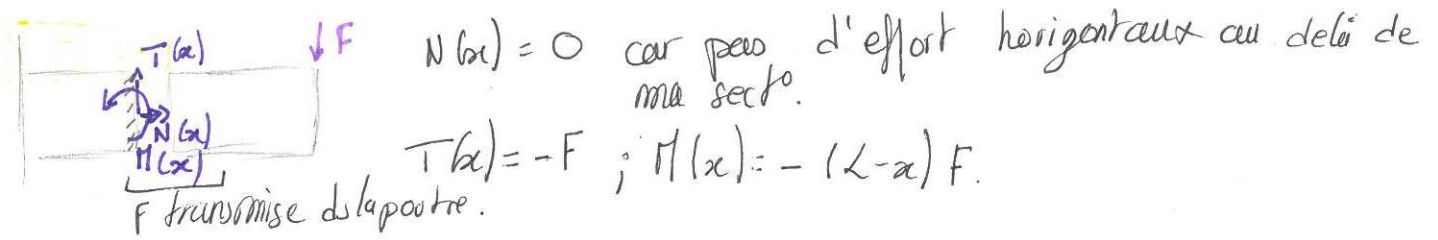 T(x)
F
N(x)
M(x)
F transmise ds la poutre.
N(x) = 0 car pas d'effort horizontaux au delà de
ma sect°.
T(x) = -F ; M(x) = - (L-x) F.